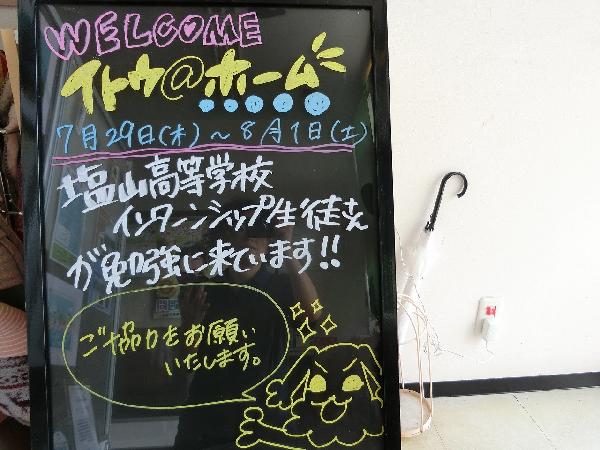 WELCOME
イトウ@ホーム
7月29日(木)～8月1日(土)
塩山高等学校
インターンシップ生徒さん
が勉強に来ています!!
ご協力をお願い
いたします。